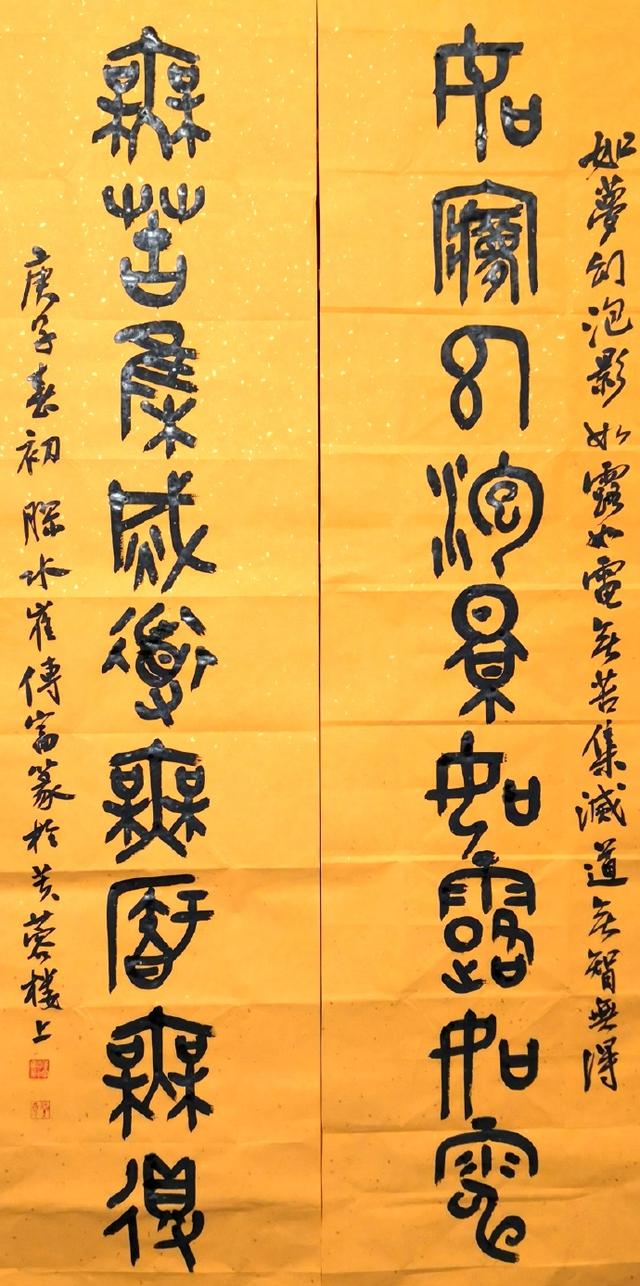 如夢幻泡影如露如電无苦集滅道无智無得
如夢幻泡景如露如電
無苦集烕道無智無得
庚子春初水崔傳富篆於芙蓉樓上